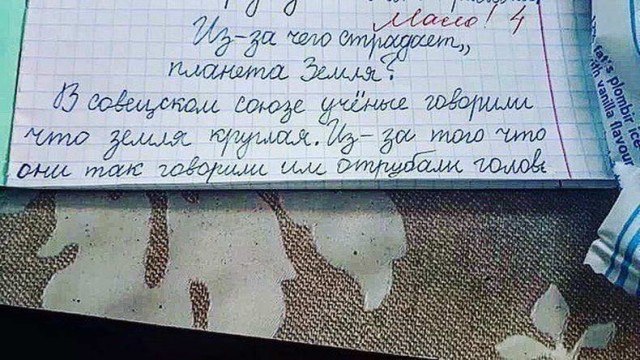 Мало! 4
Из-за чего страдает,,
планета Земля?
В совецском союзе учёные говорили
что земля круглая. Из-за того что
они так говорили им отрубали головы
plombir
vanilla flavour